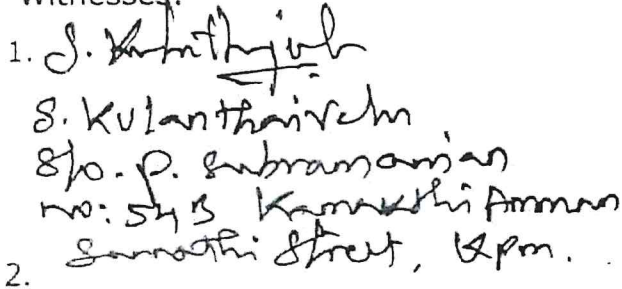 Witnesses:
1.
S. Kulanthaivelu
S/o. P. Subramanian
no: 54B Kamakshi Amman
Sannathi Street, Kpm.
2.